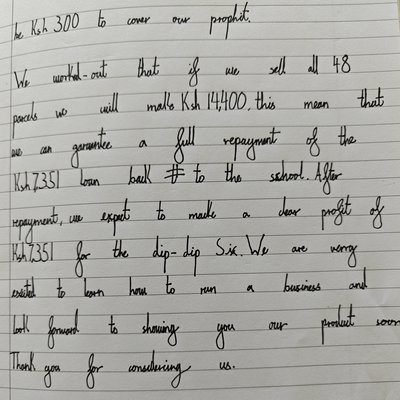 be Ksh 300 to cover our prophit.
We worked-out that if we sell all 48
parcels we will make Ksh 14,400. this mean that
we can garauntee a full repayment of the
Ksh 7,351 loan back to the school. After
repayment, we expect to make a clear profit of
Ksh 7,351 for the dip-dip Six. We are verry
excited to learn how to run a business and
look forward to showing you our product soon
Thank you for considering us.